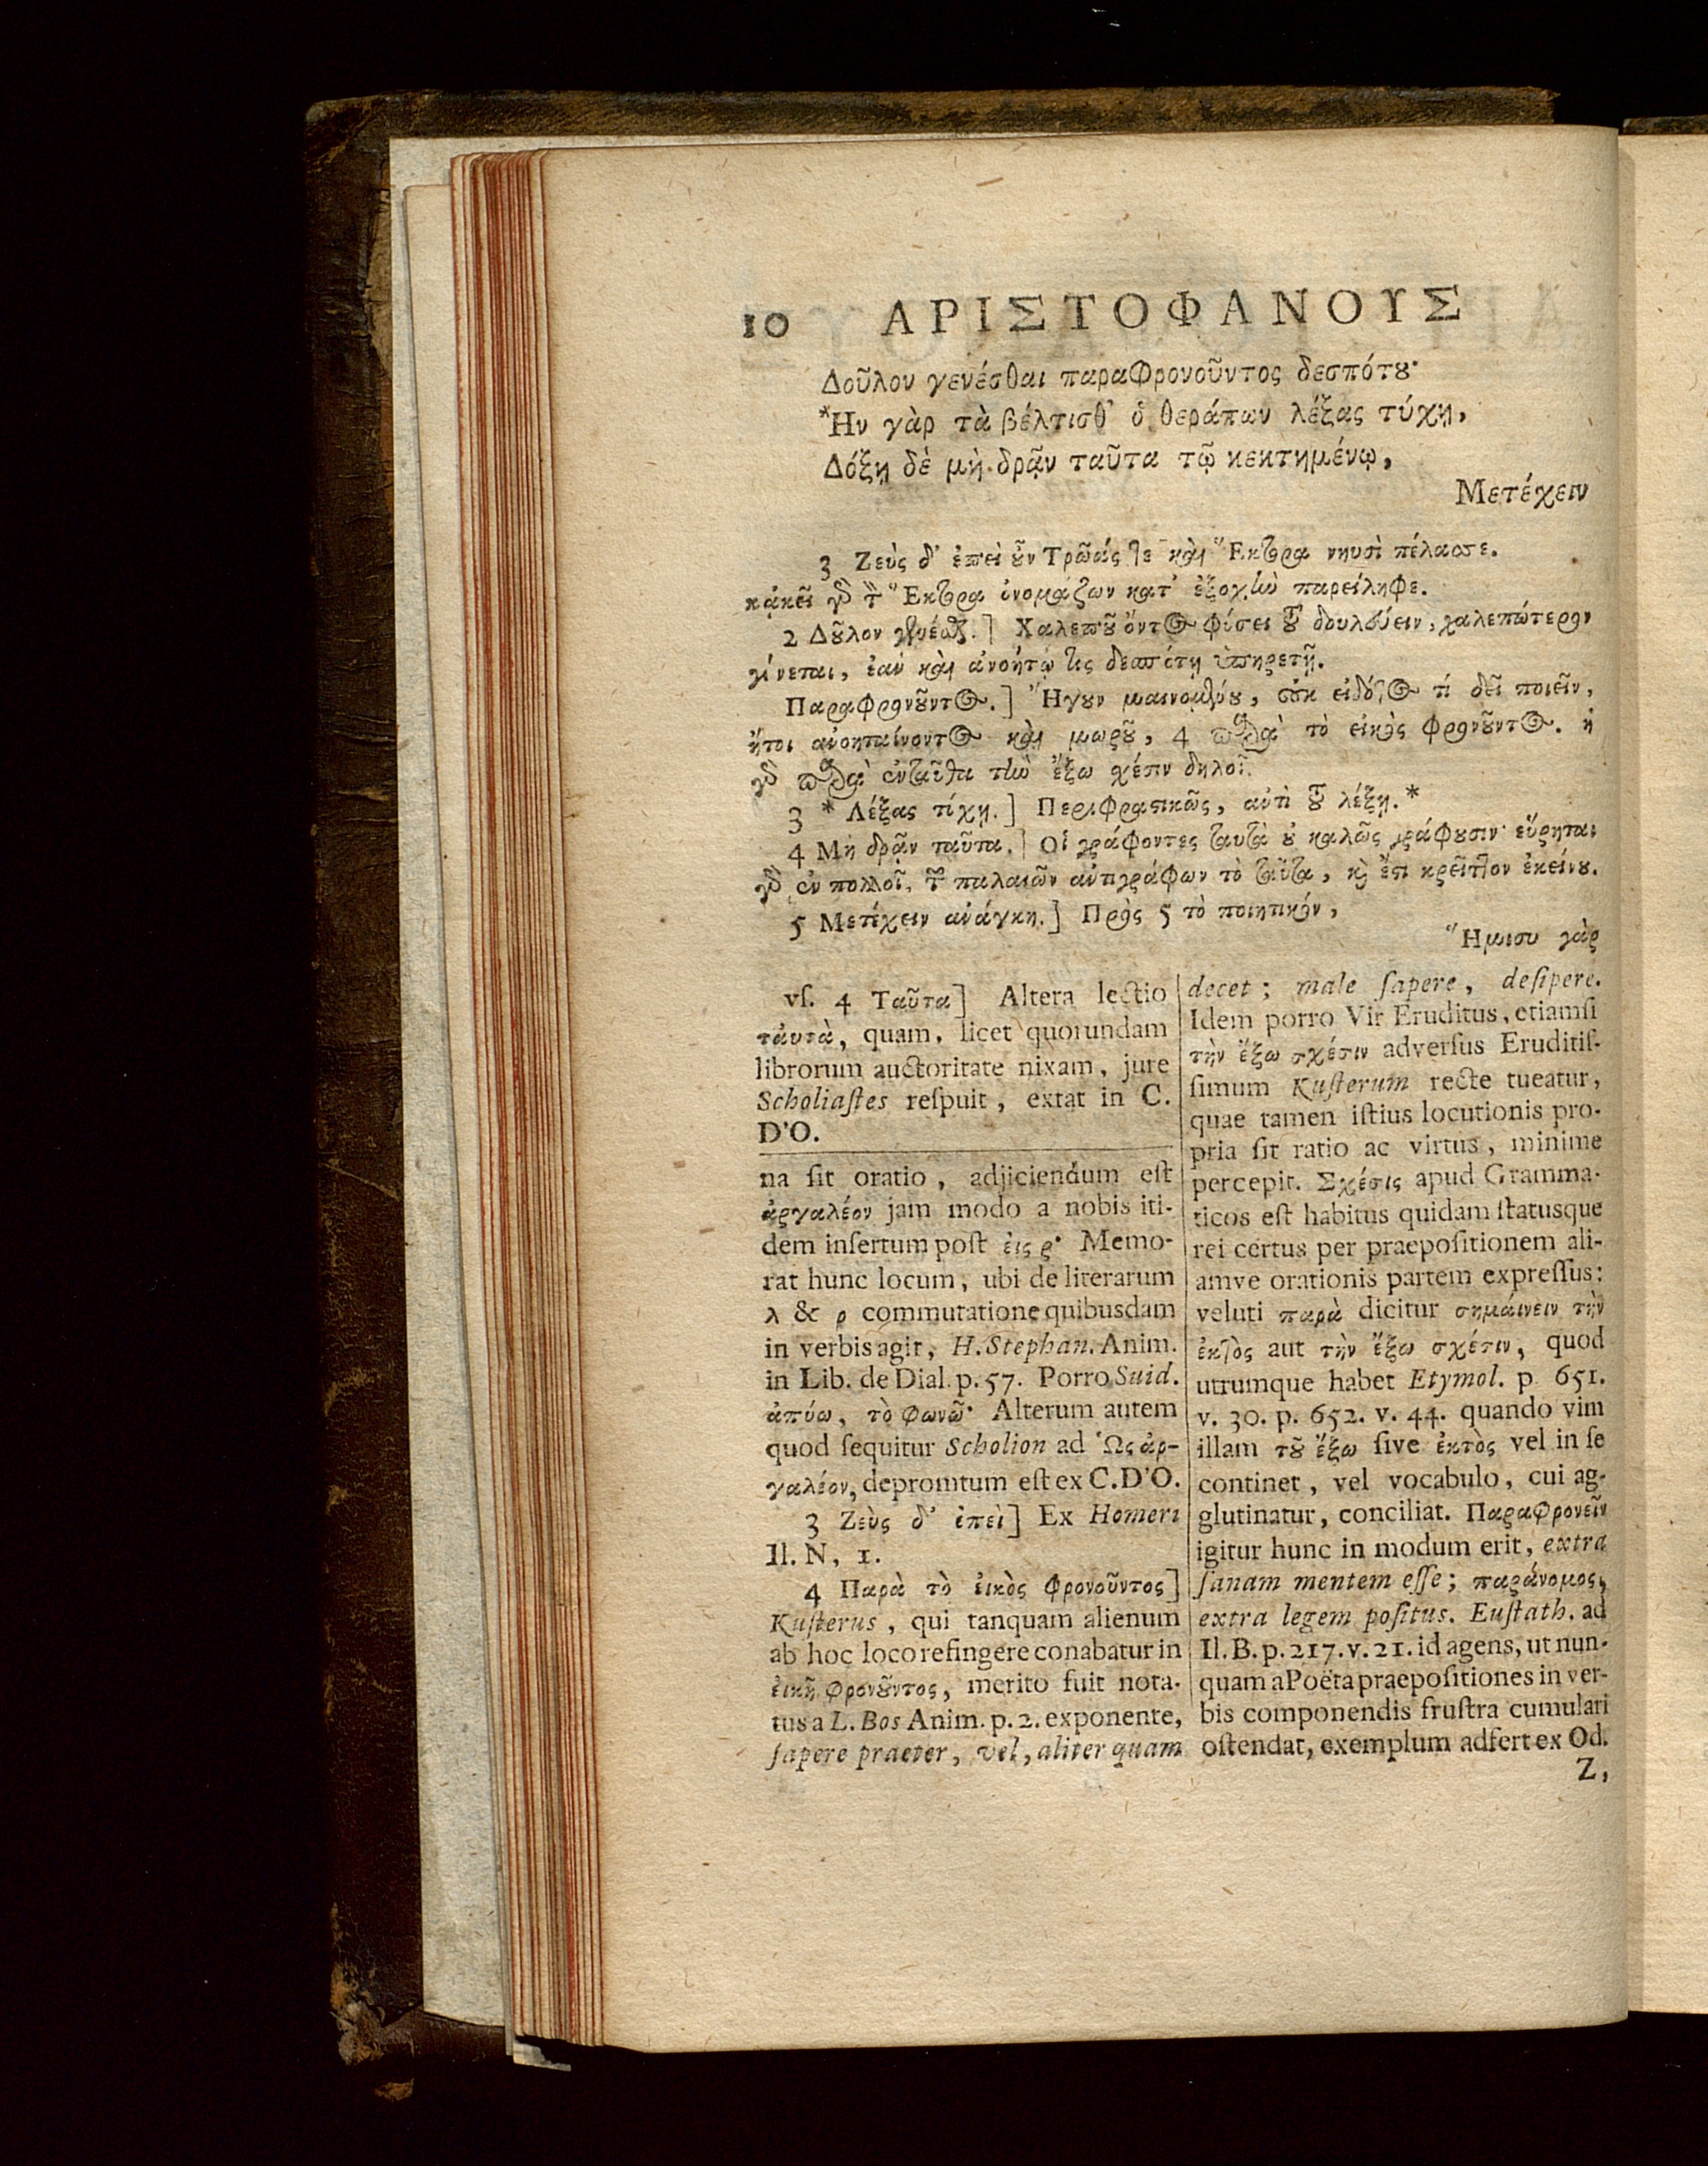 10 ΑΡΙΣΤΟΦΑΝΟΥΣ
Δοῦλον γενέσθαι παραφρονοῦντος δεσπότȣ·
Ἢν γὰρ τὰ βέλτισθ᾽ ὁ θεράπων λέξας τύχῃ,
Δόξῃ δὲ μὴ δρᾷν ταῦτα τῷ κεκτημένῳ,
Μετέχειν
3 Ζεὺς δ᾽ ἐπεὶ ȣ̓͂ν Τρῶάς τε καὶ Ἕκτορα νηυσὶ πέλασσε.
κἀκεῖ γὸ τ̃ Ἕκτορα ὀνομάζων κατ᾽ ἐξοχὴν παρείληφε.
2 Δȣ͂λον γενέσθ.] Χαλεπȣ͂ ὄντος φύσει τȣ͂ δουλεύειν, χαλεπώτερον
γίνεται, ἐὰν καὶ ἀνοήτῳ τις δεσπότῃ ὑπηρετῇ.
Παραφρονȣ͂ντος.] Ἤγȣν μαινομένȣ, οὐκ εἰδότος τί δεῖ ποιεῖν,
ἤτοι ἀνοηταίνοντος καὶ μωρȣ͂, 4 παρὰ τὸ εἰκὸς φρονȣ͂ντος. ἡ
γὸ παρὰ ἐνταῦθα τὴν ἔξω σχέσιν δηλοῖ.
3 * Λέξας τύχῃ.] Περιφραστικῶς, ἀντὶ τȣ͂ λέξῃ.*
4 Μὴ δρᾷν ταῦτα.] Οἱ γράφοντες ταυτὰ ȣ̓ καλῶς γράφȣσιν· εὕρηται
γὸ ἐν πολλοῖς τ̃ παλαιῶν ἀντιγράφων τὸ ταῦτα, κ̀ ἔστι κρεῖττον ἐκείνȣ.
5 Μετέχειν ἀνάγκη.] Πρὸς 5 τὸ ποιητικόν,
Ἥμισυ γὰρ
vſ. 4 Ταῦτα] Altera lectio
ταυτὰ, quam, licet quorundam
librorum auctoritate nixam, jure
Scholiaſtes reſpuit, extat in C.
D'O.
na ſit oratio, adjiciendum eſt
ἀργαλέον jam modo a nobis iti-
dem inſertum poſt ἐις ρ· Memo-
rat hunc locum, ubi de literarum
λ & ρ commutatione quibusdam
in verbis agit, H. Stephan. Anim.
in Lib. de Dial. p. 57. Porro Suid.
ἀπύω, τὸ φωνῶ· Alterum autem
quod ſequitur Scholion ad Ὡς ἀρ-
γαλέον, depromtum eſt ex C. D'O.
3 Ζεὺς δ᾽ ἐπεὶ] Ex Homeri
Il. N, 1.
4 Παρὰ τὸ ἐικὸς φρονοῦντος]
Kuſterus, qui tanquam alienum
ab hoc loco refingere conabatur in
ἐικῆ φρονȣ͂ντος, merito fuit nota-
tus a L. Bos Anim. p. 2. exponente,
ſapere praeter, vel, aliter quam
decet; male ſapere, deſipere.
Idem porro Vir Eruditus, etiamſi
τὴν ἔξω σχέσιν adverſus Eruditiſ-
ſimum Kuſterum recte tueatur,
quae tamen iſtius locutionis pro-
pria ſit ratio ac virtus, minime
percepit. Σχέσις apud Gramma-
ticos eſt habitus quidam ſtatusque
rei certus per praepoſitionem ali-
amve orationis partem expreſſus;
veluti παρὰ dicitur σημάινειν τὴν
ἐκτὸς aut τὴν ἔξω σχέσιν, quod
utrumque habet Etymol. p. 651.
v. 30. p. 652. v. 44. quando vim
illam τȣ͂ ἔξω ſive ἐκτὸς vel in ſe
continet, vel vocabulo, cui ag-
glutinatur, conciliat. Παραφρονεῖν
igitur hunc in modum erit, extra
ſanam mentem eſſe; παράνομος,
extra legem poſitus. Euſtath. ad
Il. B. p. 217. v. 21. id agens, ut nun-
quam a Poëta praepoſitiones in ver-
bis componendis fruſtra cumulari
oſtendat, exemplum adfert ex Od.
Z,